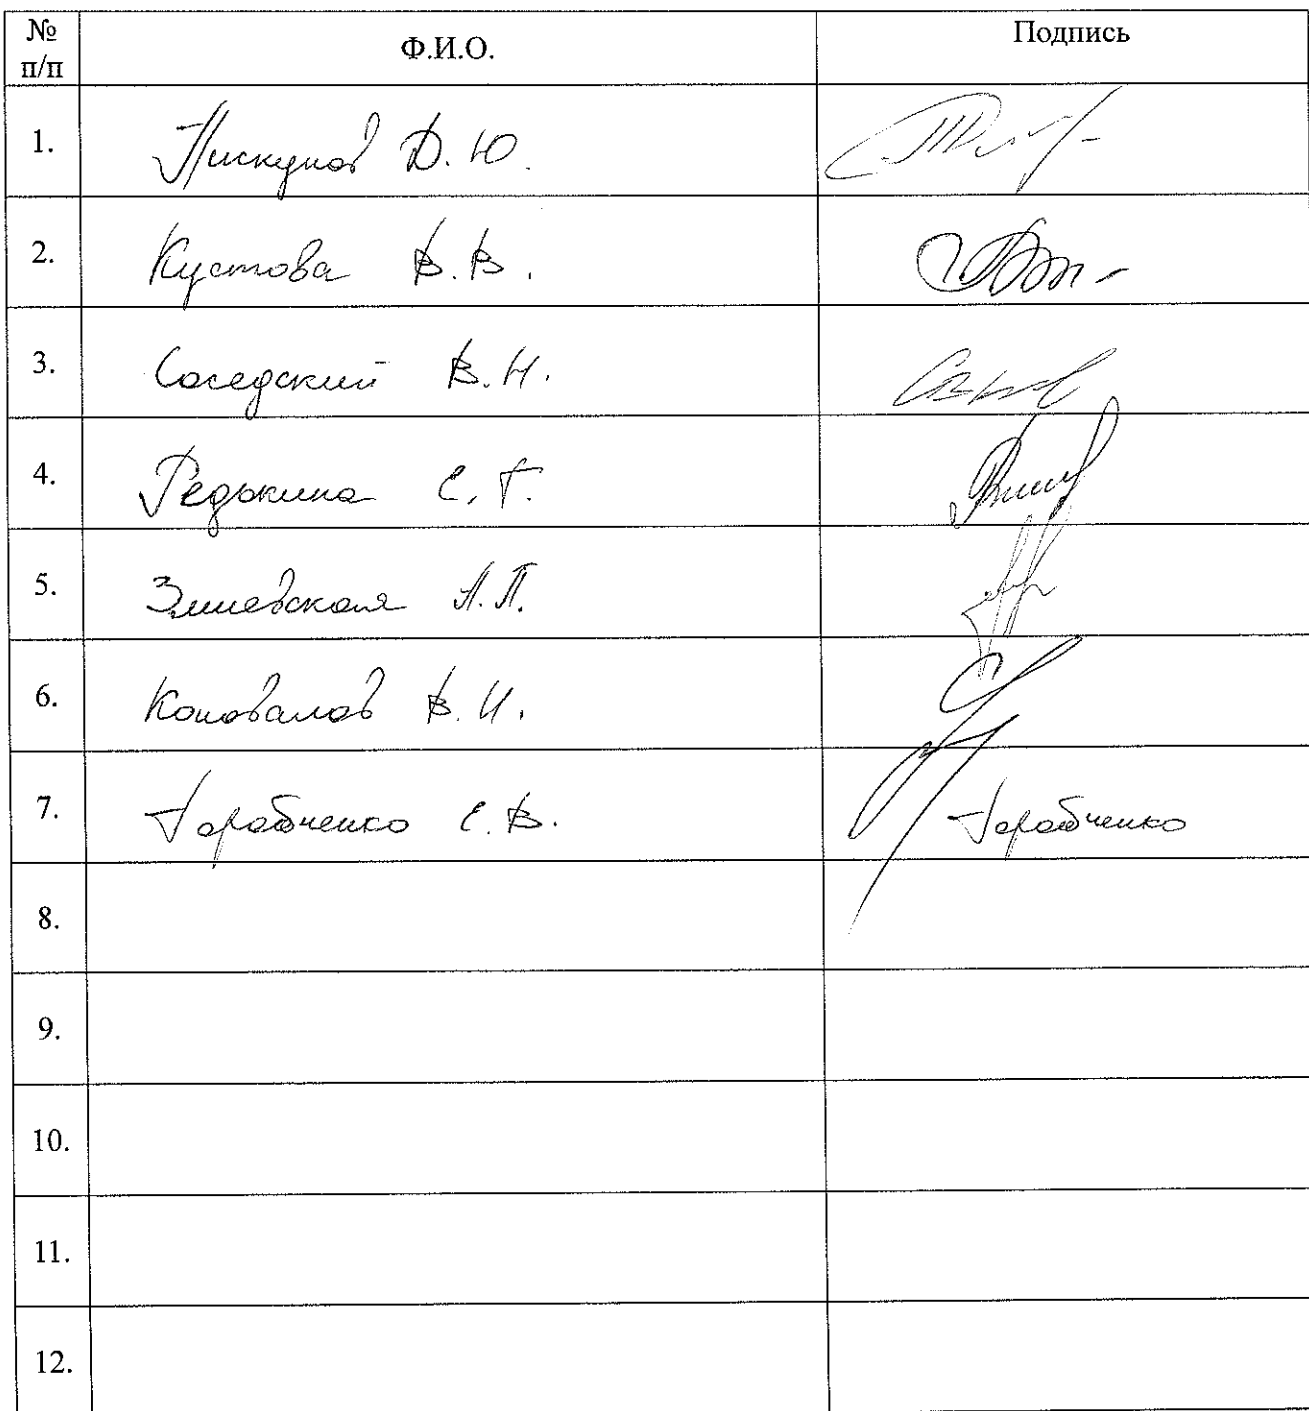 № п/п Ф.И.О. Подпись
1. Пискунов Д.Ю.
2. Кустова В.В.
3. Соседский В.Н.
4. Редькина Е.Г.
5. Змиевская Л.П.
6. Коновалов В.И.
7. Тарабченко Е.В. Тарабченко
8.
9.
10.
11.
12.